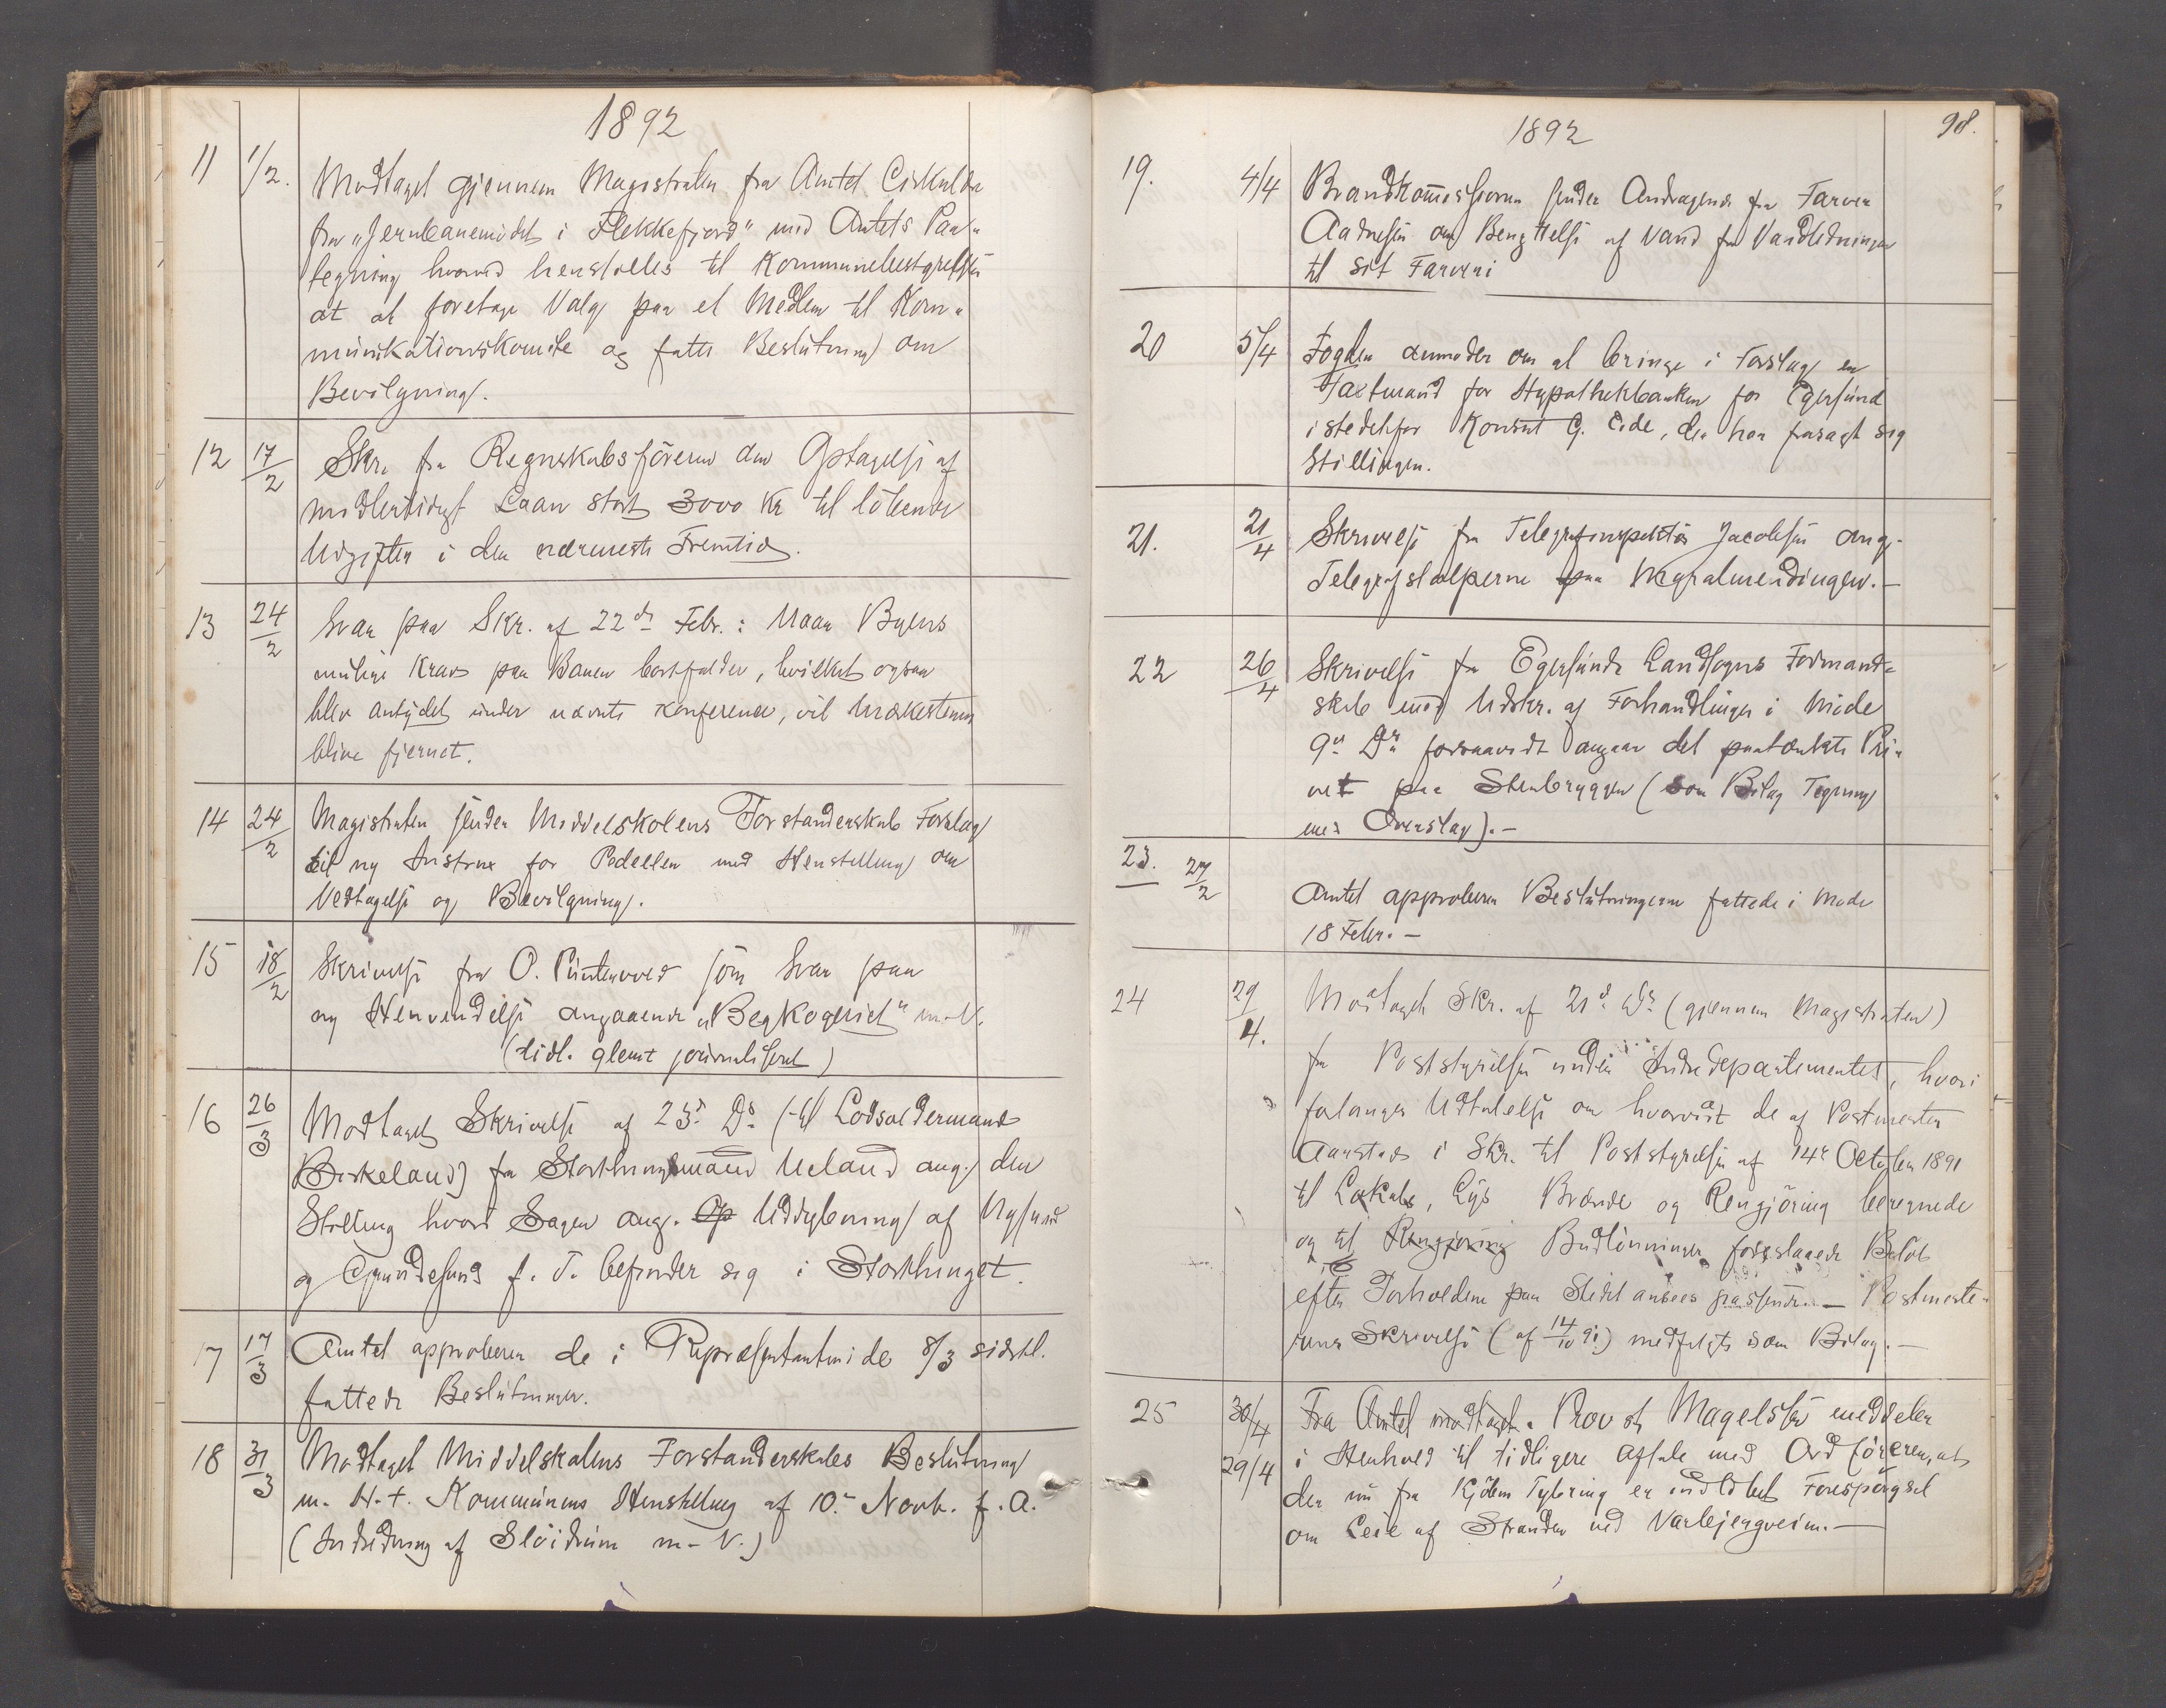 1892
11 1/2. Modtaget gjennem Magistraten fra Amtet Cirkulære
fra "Jernbanemödet i Flekkefjord" med Amtets Paa-
tegning hvorved henstilles til Kommunebestyrelsen
at at foretage Valg paa et Medlem til Kom-
munikationskomite og fatte Beslutning om
Bevilgning.
12 17/2 Skr. fra Regnskabsföreren om Optagelse af
midlertidigt Laan stort 3000 Kr til löbende
Udgifter i den nærmeste Fremtid.
13 24/2 Svar paa Skr. af 22de Febr.: Naar Byens
mulige Krav paa Banen bortfalder, hvilket ogsaa
blev antydet under nævnte Konferense, vil
blive fjernet.
14 24/2 Magistraten sender Middelskolens Forstanderskab Forslag
til ny Instrux for Pedellen med Henstilling om
Vedtagelse og Bevilgning.
15 18/2 Skrivelse fra O. Puntervold som Svar paa
ny Henvendelse angaaende "Begkogeriet" m-V.
(tidl. glemt journaliseret)
16 26/3 Modtaget Skrivelse af 23d Ds (til Lodsoldermand
Birkeland) fra Storthingsmand Ueland ang. den
Stilling hvori Sagen ang. Op Uddybning af Nysund
og Grundesund f. T. befinder sig i Storthinget.
17 17/3 Amtet approberer de i Repræsentantmöde 8/3 sidstl.
fattede Beslutninger.
18 31/3 Modtaget Middelskolens Forstanderskabs Beslutning
m. H. t. Kommunens Henstilling af 10. Novb. f. A.
(Indredning af Slöidrum m-V.)
98.
1892
19. 4/4 Brandkommissionen sender Andragende fra Farver
Aadnesen om Benyttelse af Vand fra Vandledningen
til sit Farveri
20 5/4 Fogden anmoder om at bringe i Forslag en
Taxtmand for Hypothekbanken for Egersund
istedetfor Konsul G. Eide, der har frasagt sig
Stillingen.
21. 21/4 Skrivelse fra Telegrafinspektör Jacobsen ang.
Telegrafstolperne paa Nygralmendingen.—
22 26/4 Skrivelse fra Egersunds Landsogns Formand-
skab med Udskr. af Forhandlinger i Möde
9de Ds forsaavidt angaar det paatænkte Pri-
vet paa Stenbryggen (som Bilag Tegning
med Overslag).—
23. 27/2 Amtet approberer Beslutningerne fattede i Möde
18 Febr.—
24 29/4. Modtaget Skr. af 21d Ds (gjennem Magistraten)
fra Poststyrelsen under Indredepartementet, hvori
forlanges Udtalelse om hvorvidt de af Postmester
Aanstad i Skr. til Poststyrelsen af 14de October 1891
til Lokale, Lys Brænde og Rengjöring beregnede
og til Rengjöring Budlönninger foreslaaede Belöb
efter Forholdene paa Stedet ansees passende.— Postmeste-
rens Skrivelse (af 14/10 91) medfulgte som Bilag.—
25 30/4 Fra Amtet modtaget. Provst Magelssen meddeler
29/4 i Henhold til tidligere Aftale med Ordföreren, at
der nu fra Kjöbm Tybring er indlöbet Forespörgsel
om Leie af Stranden ved Varbjergveien.—